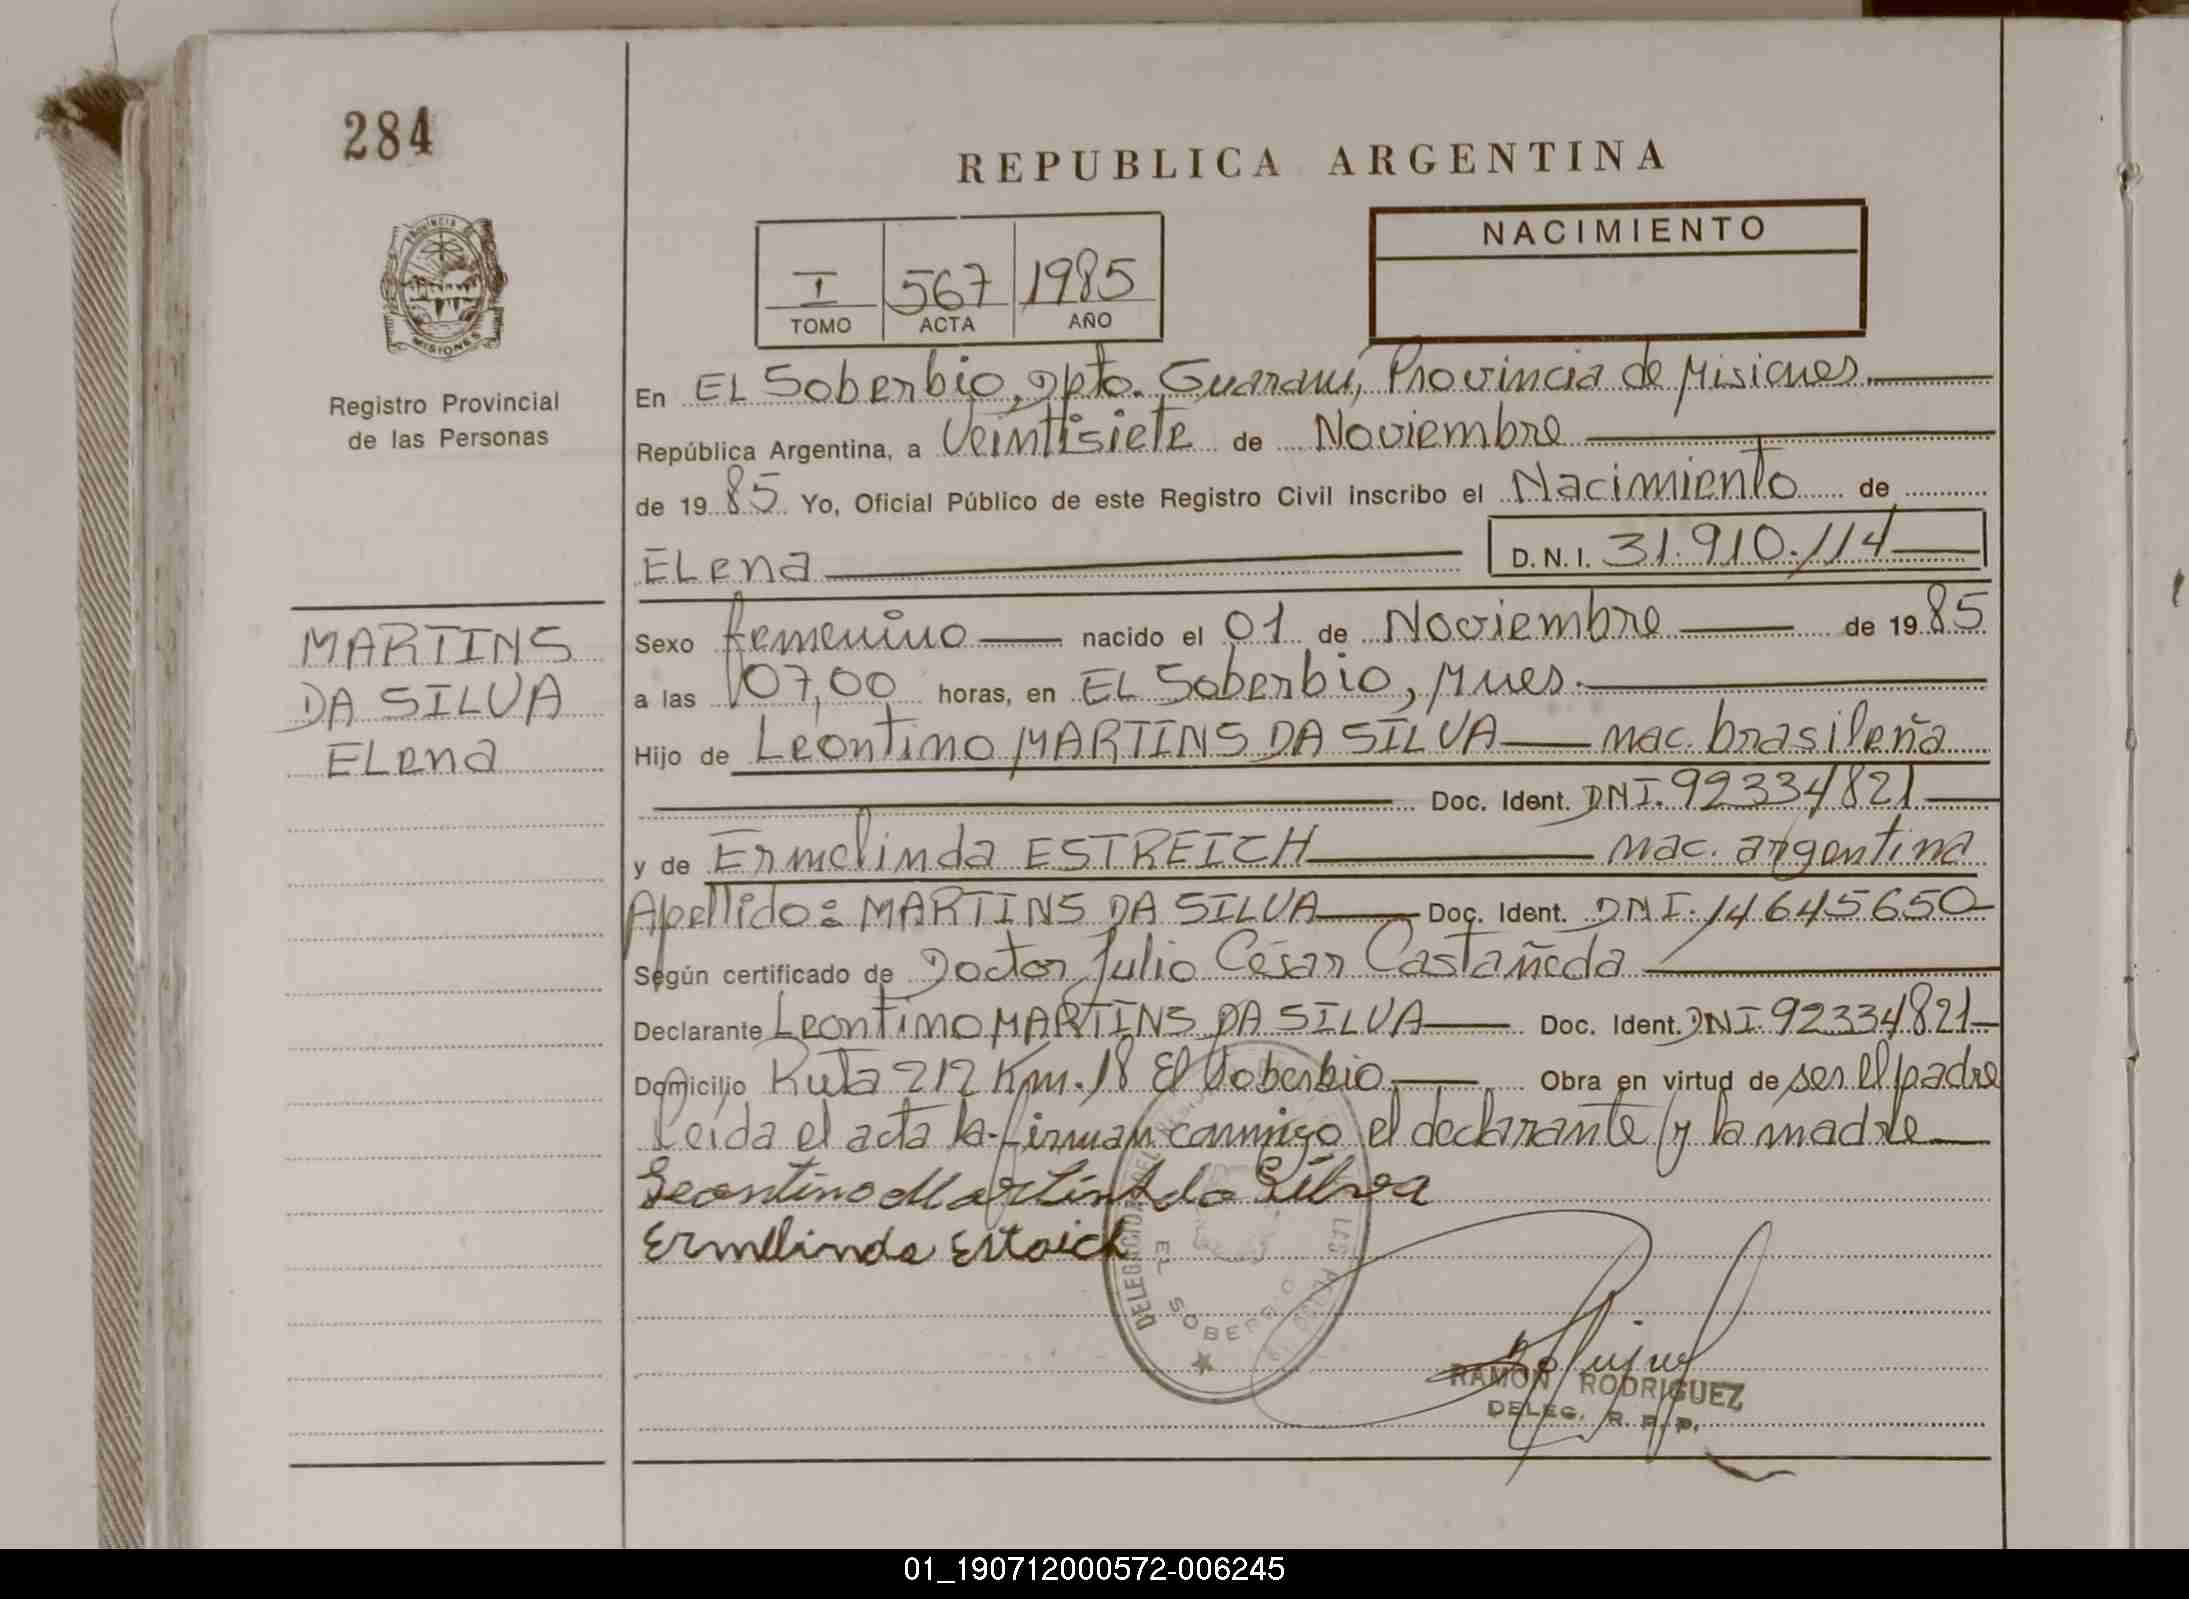 284
REPUBLICA ARGENTINA
NACIMIENTO
I 567 1985
TOMO ACTA AÑO
PROVINCIA DE
MISIONES
Registro Provincial
de las Personas
En EL Soberbio, Dpto. Guaraní, Provincia de Misiones
República Argentina, a Veintisiete de Noviembre
de 1985 Yo, Oficial Público de este Registro Civil inscribo el Nacimiento de
ELena D.N.I. 31.910.114
MARTINS
DA SILVA
ELena
Sexo femenino nacido el 01 de Noviembre de 1985
a las 07,00 horas, en EL Soberbio, Mnes.
Hijo de Leontino MARTINS DA SILVA nac. brasileña
Doc. Ident. DNI. 92334821
y de Ermelinda ESTREICH nac. argentina
Apellido: MARTINS DA SILVA Doc. Ident. DNI. 14645650
Según certificado de Doctor Julio César Castañeda
Declarante Leontino MARTINS DA SILVA Doc. Ident. DNI. 92334821
Domicilio Ruta 212 Km. 18 El Soberbio Obra en virtud de ser el padre
Leída el acta la firman conmigo el declarante y la madre
Leontino Martins da Silva
Ermelinda Estaich
EL SOBERBIO
RAMON RODRIGUEZ
DELEG. R. P. P.
01_190712000572-006245